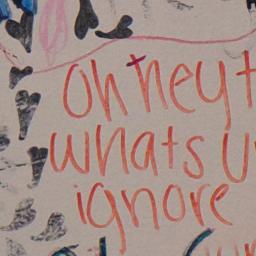 Oh hey
whats
ignore